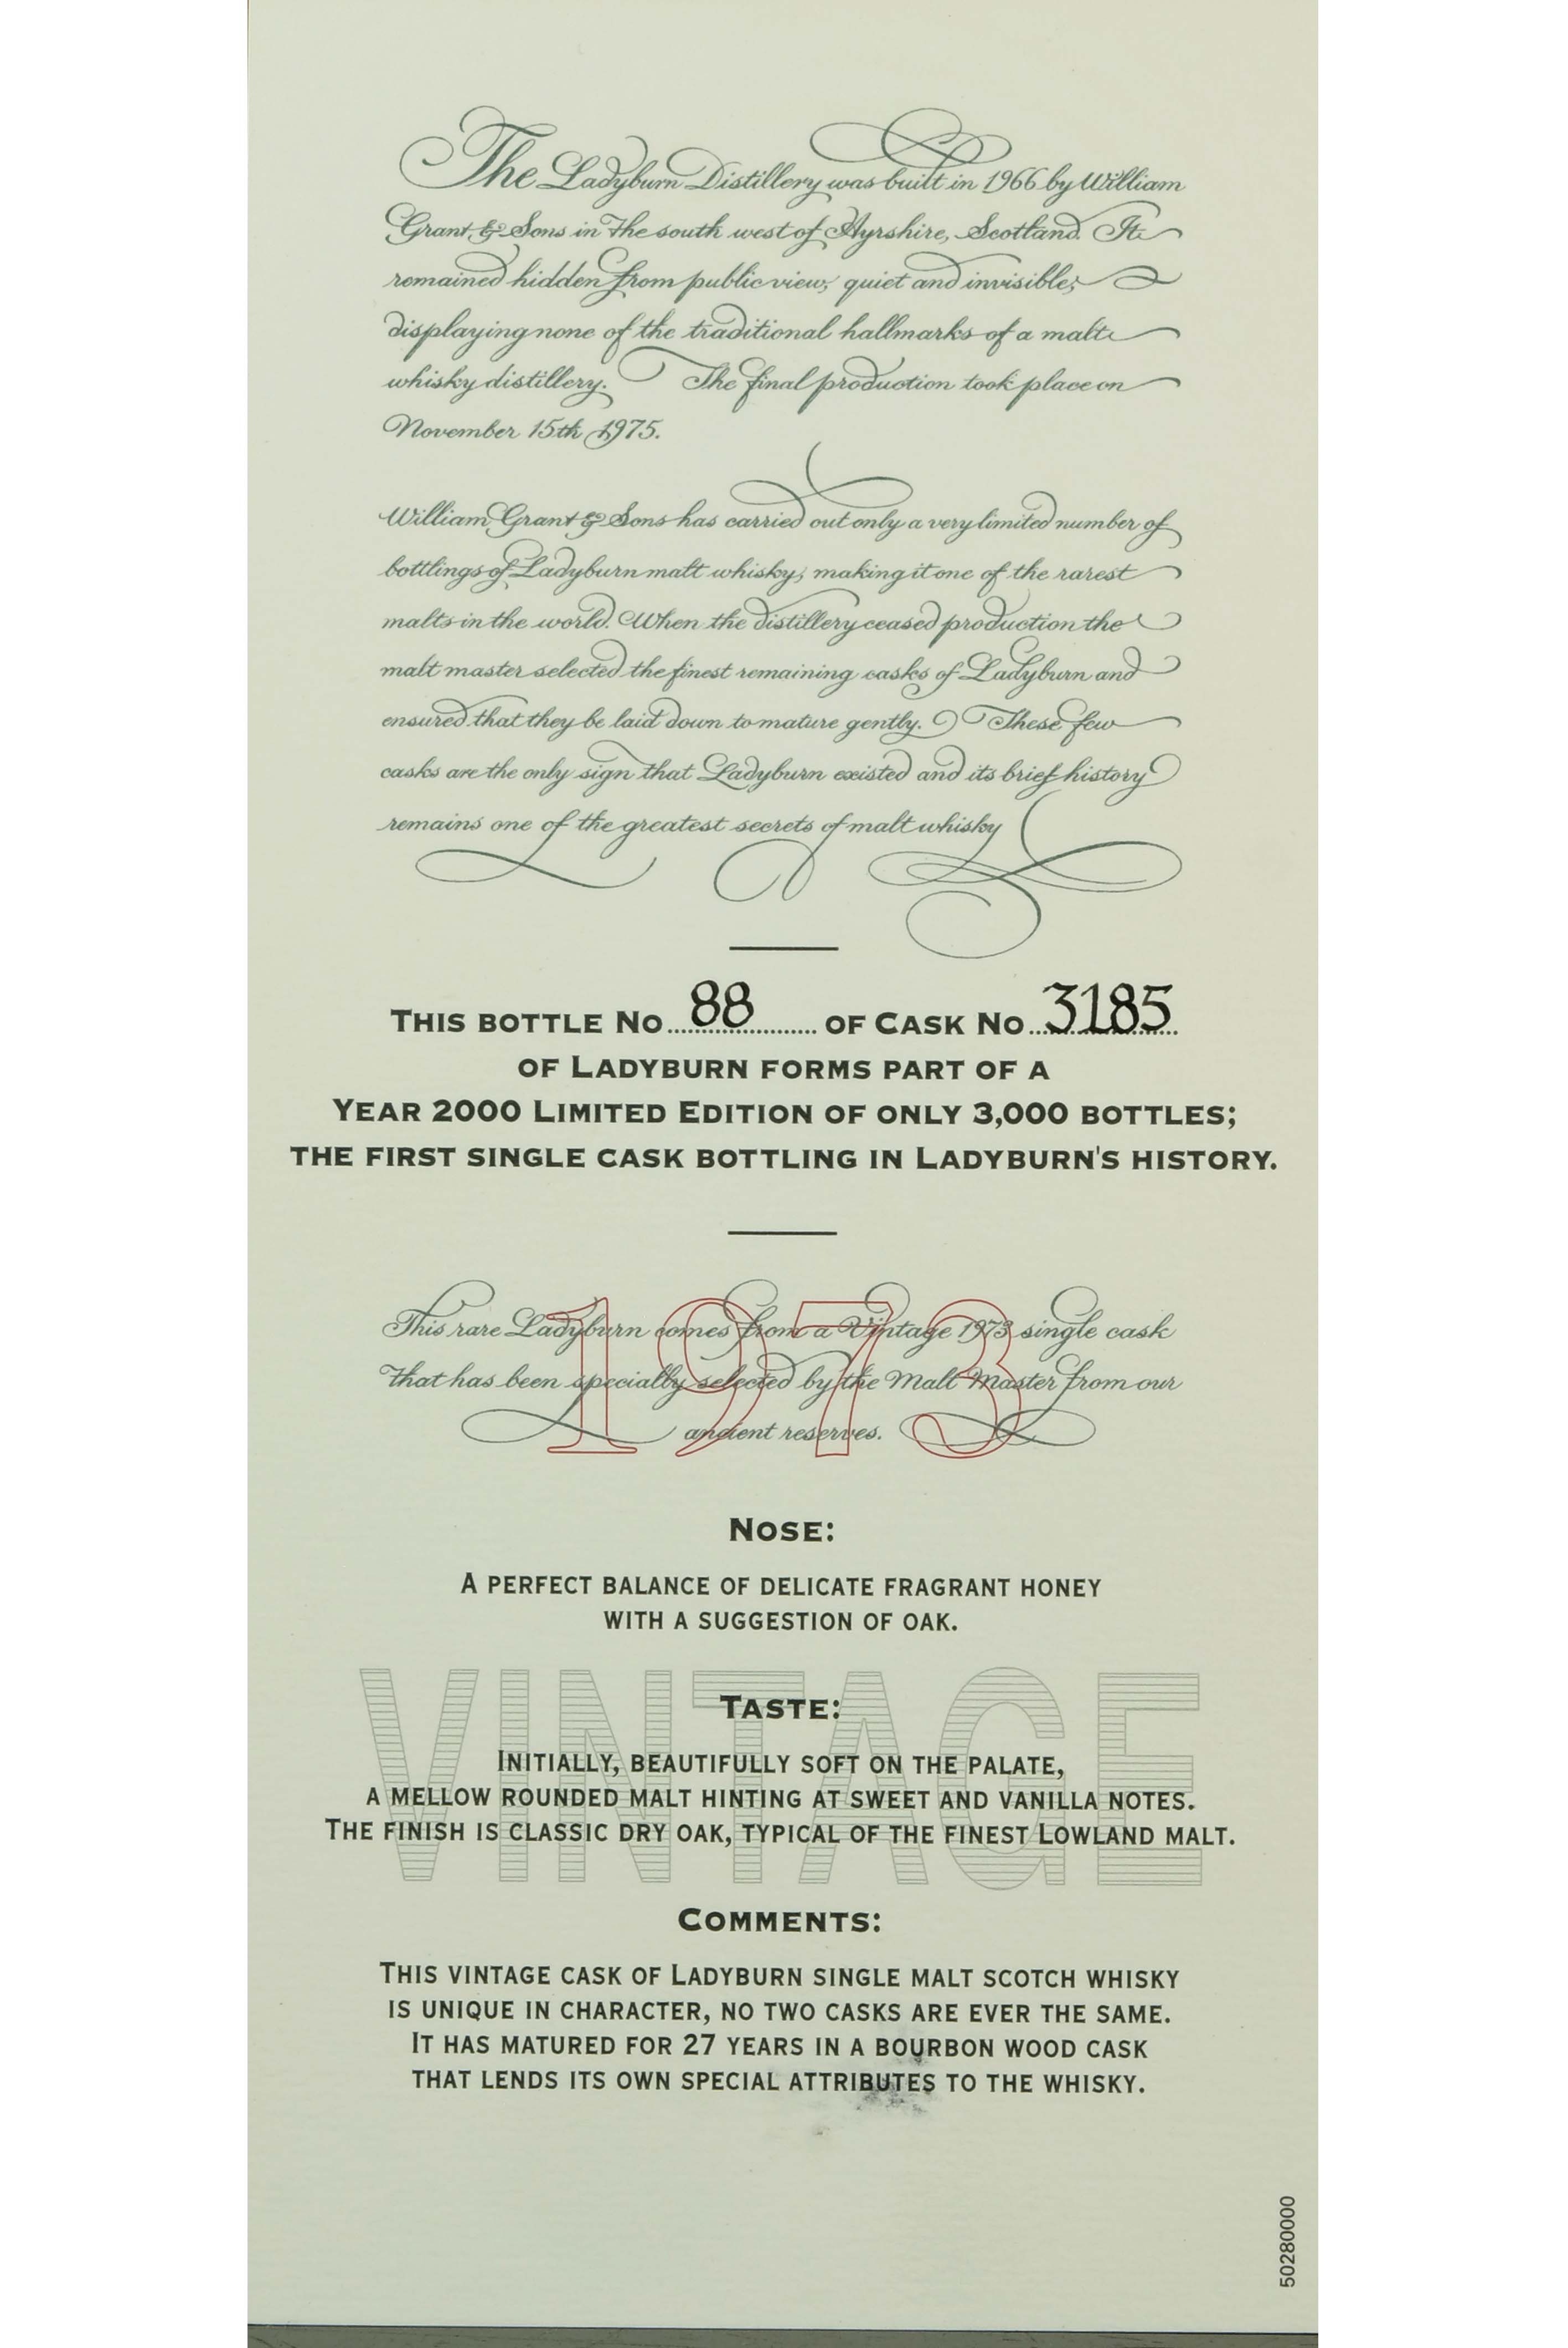 The Ladyburn Distillery was built in 1966 by William
Grant & Sons in the south west of Ayrshire, Scotland. It
remained hidden from public view, quiet and invisible,
displaying none of the traditional hallmarks of a malt
whisky distillery. The final production took place on
November 15th 1975.
William Grant & Sons has carried out only a very limited number of
bottlings of Ladyburn malt whisky, making it one of the rarest
malts in the world. When the distillery ceased production the
malt master selected the finest remaining casks of Ladyburn and
ensured that they be laid down to mature gently. These few
casks are the only sign that Ladyburn existed and its brief history
remains one of the greatest secrets of malt whisky
THIS BOTTLE NO 88 OF CASK NO 3185
OF LADYBURN FORMS PART OF A
YEAR 2000 LIMITED EDITION OF ONLY 3,000 BOTTLES;
THE FIRST SINGLE CASK BOTTLING IN LADYBURN'S HISTORY.
1973
This rare Ladyburn comes from a Vintage 1973 single cask
that has been specially selected by the Malt Master from our
ancient reserves.
NOSE:
A PERFECT BALANCE OF DELICATE FRAGRANT HONEY
WITH A SUGGESTION OF OAK.
VINTAGE
TASTE:
INITIALLY, BEAUTIFULLY SOFT ON THE PALATE,
A MELLOW ROUNDED MALT HINTING AT SWEET AND VANILLA NOTES.
THE FINISH IS CLASSIC DRY OAK, TYPICAL OF THE FINEST LOWLAND MALT.
COMMENTS:
THIS VINTAGE CASK OF LADYBURN SINGLE MALT SCOTCH WHISKY
IS UNIQUE IN CHARACTER, NO TWO CASKS ARE EVER THE SAME.
IT HAS MATURED FOR 27 YEARS IN A BOURBON WOOD CASK
THAT LENDS ITS OWN SPECIAL ATTRIBUTES TO THE WHISKY.
50280000